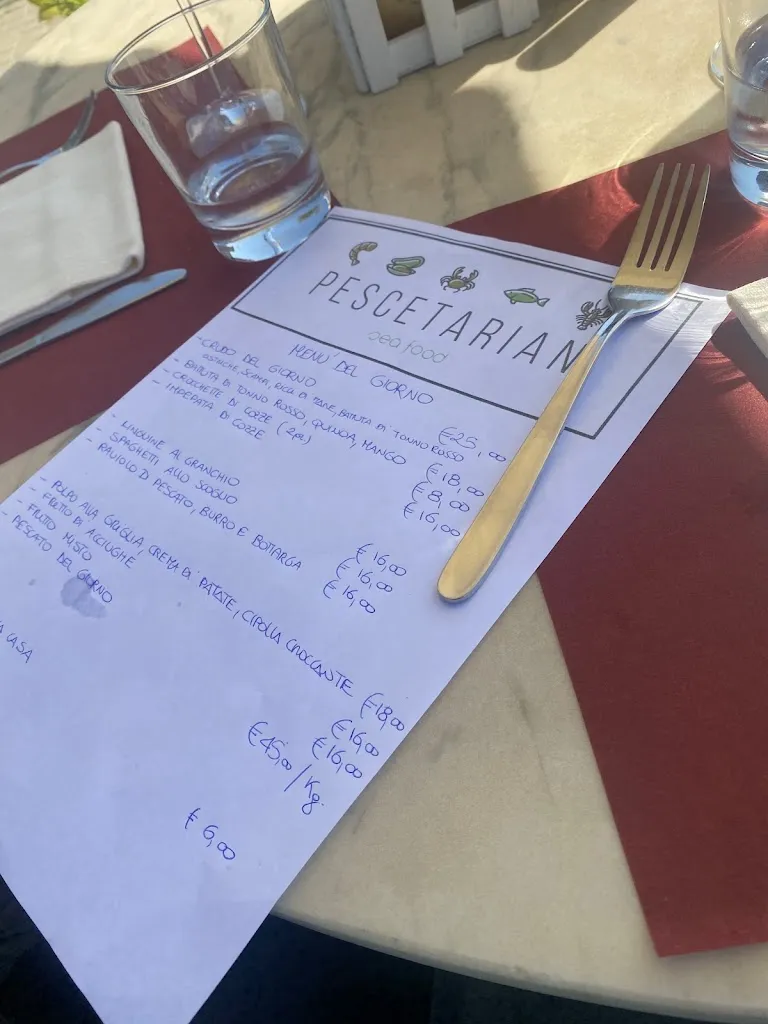 PESCETARIAN
sea food
MENU' DEL GIORNO
- CRUDO DEL GIORNO €25,00
OSTRICHE, SCAMPI, RICCI DI MARE, BATTUTA DI TONNO ROSSO
- BATTUTA DI TONNO ROSSO, QUINOA, MANGO €18,00
- CROCCHETTE DI COZZE (2pz) €8,00
- IMPEPATA DI COZZE €16,00
- LINGUINE AL GRANCHIO €16,00
- SPAGHETTI ALLO SCOGLIO €16,00
- RAVIOLO DI PESCATO, BURRO E BOTARGA €16,00
- POLPO ALLA GRIGLIA, CREMA DI PATATE, CIPOLLA CROCCANTE €18,00
- FRITTO DI ACCIUGHE €16,00
- FRITTO MISTO €16,00
- PESCATO DEL GIORNO €45,00/Kg.
CASA € 6,00